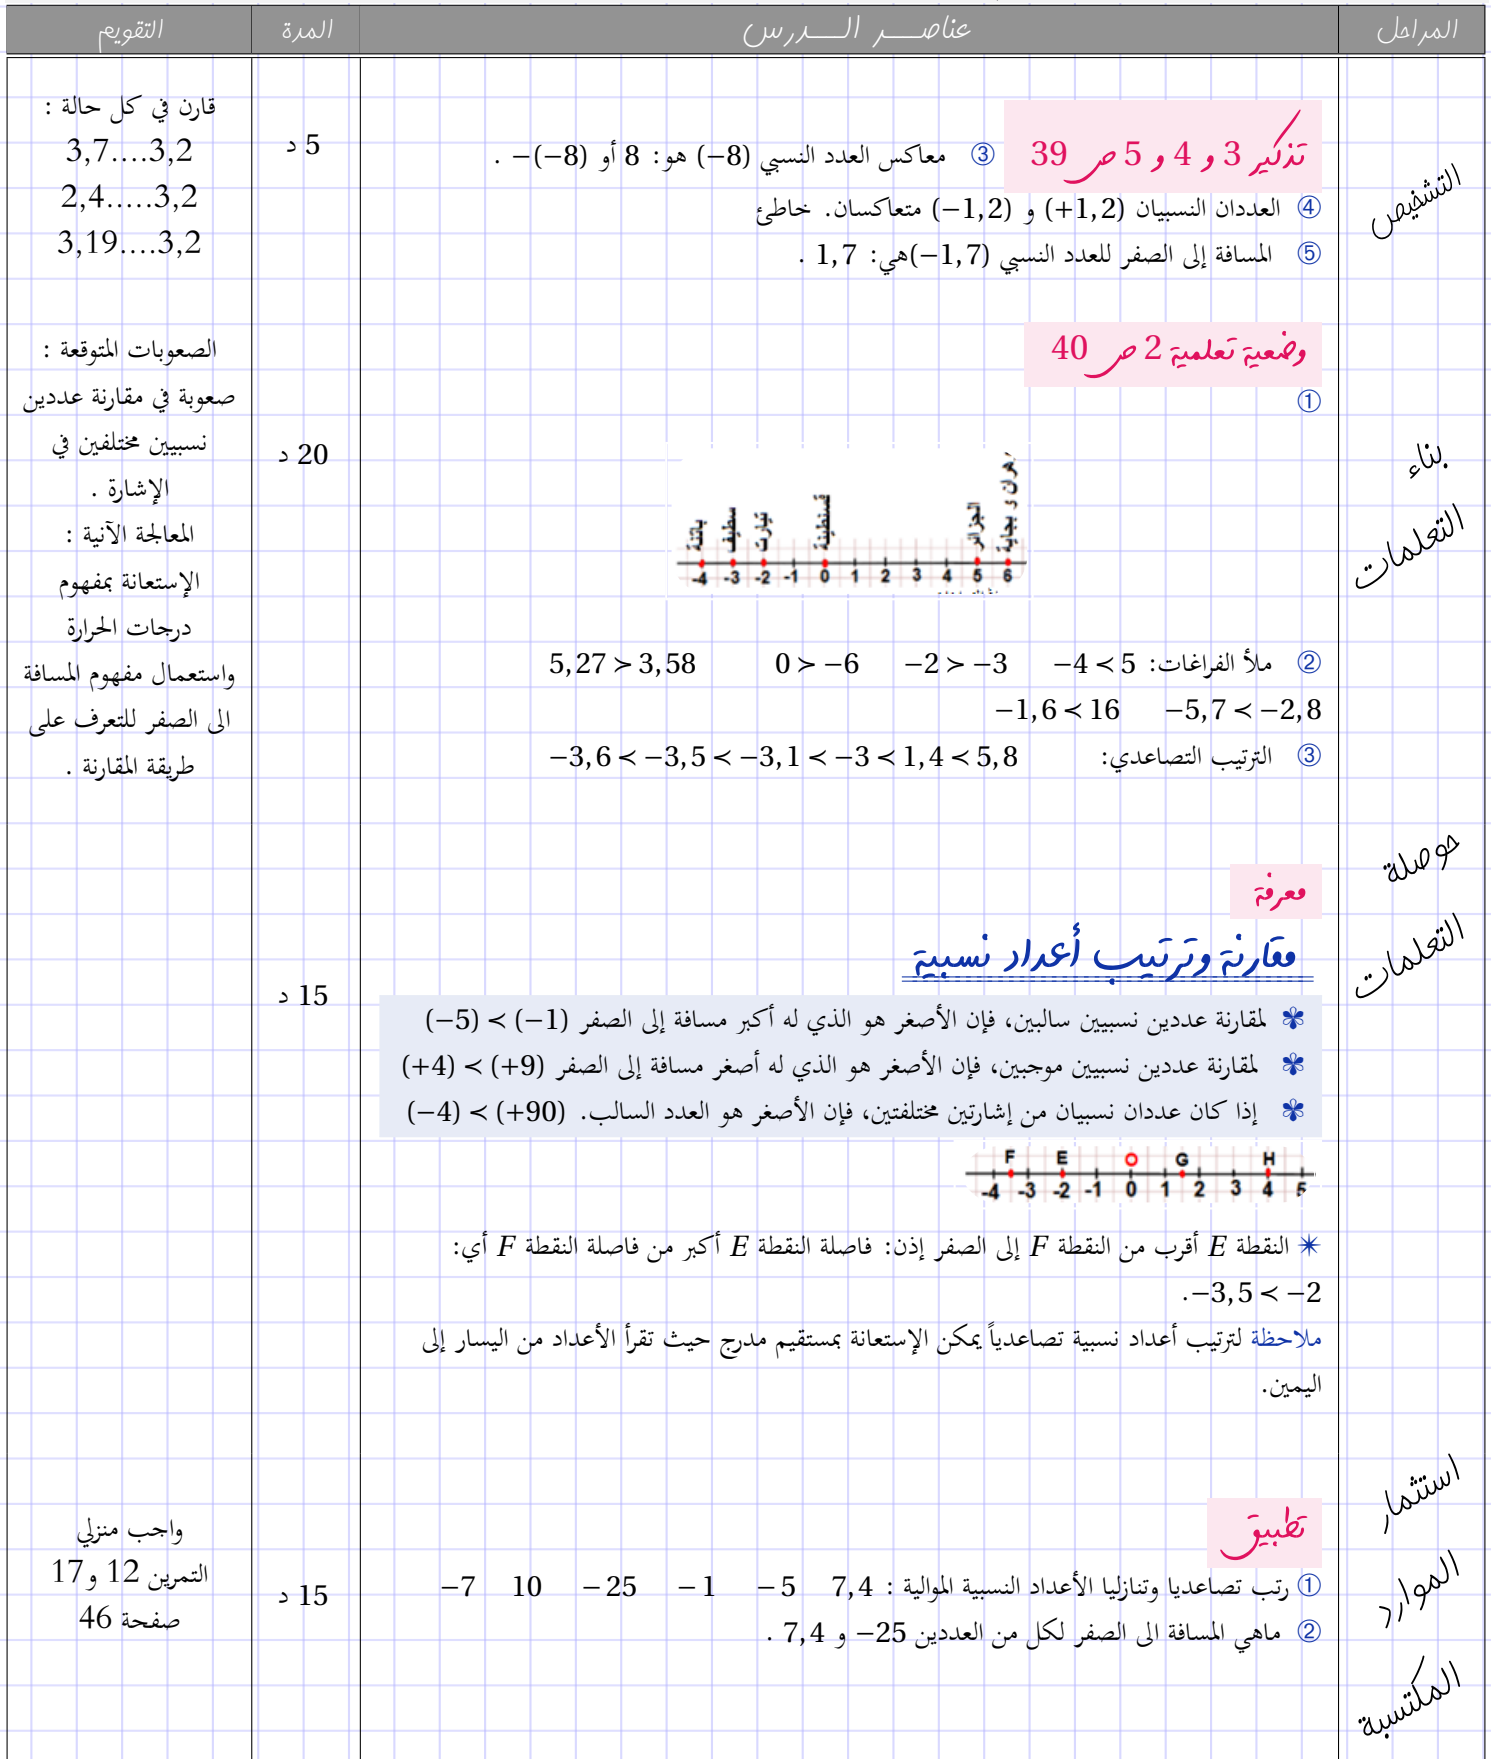 المراحل
عناصر الدرس
المدة
التقويم
التشخيص
تذكير 3 و 4 و 5 ص 39
③ معاكس العدد النسبي (−8) هو: 8 أو −(−8) .
④ العددان النسبيان (+1,2) و (−1,2) متعاكسان. خاطئ
⑤ المسافة إلى الصفر للعدد النسبي (−1,7) هي: 1,7 .
5 د
قارن في كل حالة :
3,7....3,2
2,4.....3,2
3,19....3,2
بناء
التعلمات
وضعية تعلمية 2 ص 40
①
باتنة سطيف تيارت قسنطينة الجزائر وهران و بجاية
-4 -3 -2 -1 0 1 2 3 4 5 6
② ملأ الفراغات: −4 ≺ 5 −2 ≻ −3 0 ≻ −6 5,27 ≻ 3,58
−5,7 ≺ −2,8 −1,6 ≺ 16
③ الترتيب التصاعدي: −3,6 ≺ −3,5 ≺ −3,1 ≺ −3 ≺ 1,4 ≺ 5,8
20 د
الصعوبات المتوقعة :
صعوبة في مقارنة عددين
نسبيين مختلفين في
الإشارة .
المعالجة الآنية :
الإستعانة بمفهوم
درجات الحرارة
واستعمال مفهوم المسافة
الى الصفر للتعرف على
طريقة المقارنة .
حوصلة
التعلمات
معرفة
مقارنة وترتيب أعداد نسبية
✾ لمقارنة عددين نسبيين سالبين، فإن الأصغر هو الذي له أكبر مسافة إلى الصفر (−5) ≺ (−1)
✾ لمقارنة عددين نسبيين موجبين، فإن الأصغر هو الذي له أصغر مسافة إلى الصفر (+4) ≺ (+9)
✾ إذا كان عددان نسبيان من إشارتين مختلفتين، فإن الأصغر هو العدد السالب. (−4) ≺ (+90)
F E O G H
-4 -3 -2 -1 0 1 2 3 4 5
✳ النقطة E أقرب من النقطة F إلى الصفر إذن: فاصلة النقطة E أكبر من فاصلة النقطة F أي:
−3,5 ≺ −2.
ملاحظة لترتيب أعداد نسبية تصاعدياً يمكن الإستعانة بمستقيم مدرج حيث تقرأ الأعداد من اليسار إلى
اليمين.
15 د
استثمار
الموارد
المكتسبة
تطبيق
① رتب تصاعديا وتنازليا الأعداد النسبية الموالية : 7,4 −5 −1 −25 10 −7
② ماهي المسافة الى الصفر لكل من العددين −25 و 7,4 .
15 د
واجب منزلي
التمرين 12 و17
صفحة 46